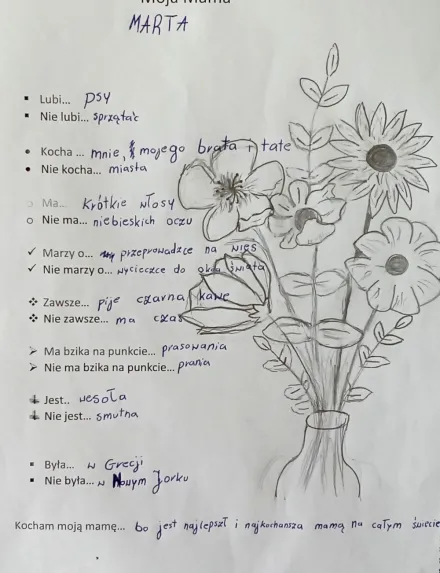 Moja Mama
MARTA
Lubi... psy
Nie lubi... sprzątać
Kocha ... mnie, mojego brata i tate
Nie kocha... miasta
Ma... krótkie włosy
Nie ma... niebieskich oczu
Marzy o... przeprowadzce na wieś
Nie marzy o... wycieczce do okoła świata
Zawsze... pije czarną kawe
Nie zawsze... ma czas
Ma bzika na punkcie... prasowania
Nie ma bzika na punkcie... prania
Jest.. wesoła
Nie jest... smutna
Była... w Grecji
Nie była... w Nowym Jorku
Kocham moją mamę... bo jest najlepszą i najkochansza mamą na całym świecie